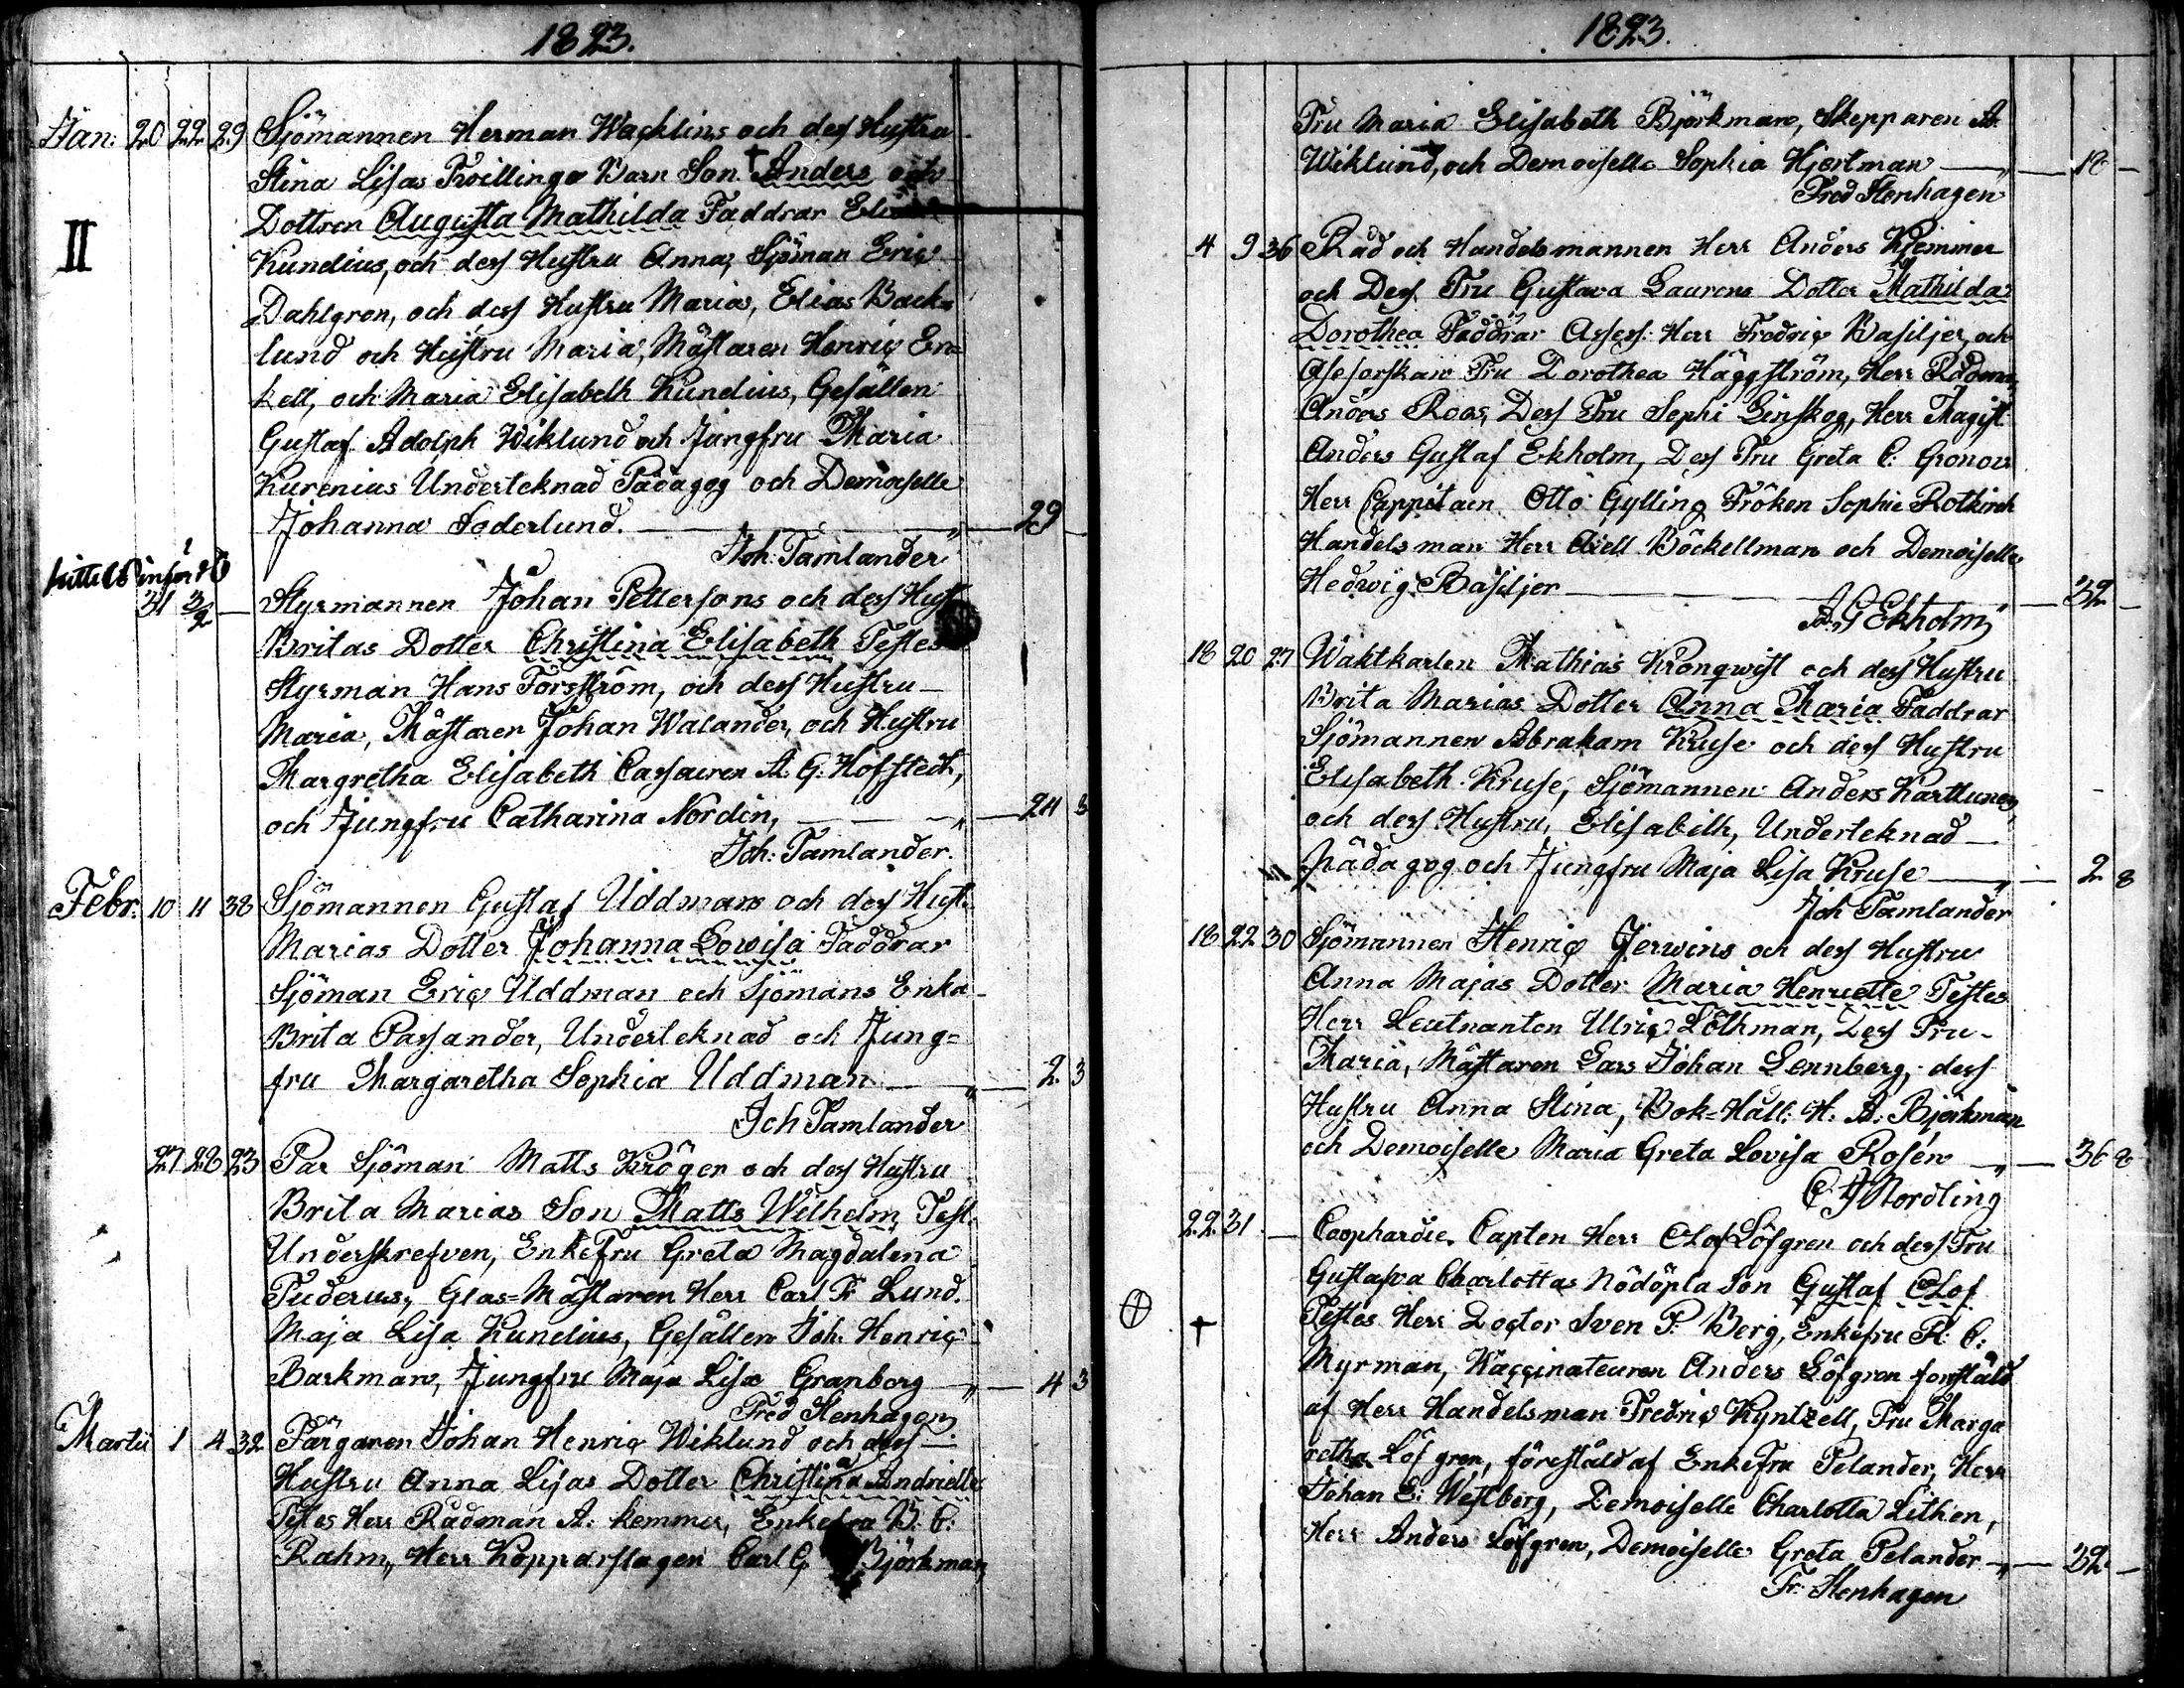 1823.
Jan: 20 22 29 Sjömannen Herman Wacklins och dess Hustru
Stina Lisas Twillinge Barn Son † Anders och
Dottren Augusta Mathilda Faddrar
II
Kundius, och dess Hustru Anna, Sjöman Eric
Dahlgren, och dess Hustru Maria, Elias Back=
lund och Hustru Maria, Mästaren Henric En=
kell, och Maria Elisabeth Kundius, Gesällen
Gustaf Adolph Wiklund och Jungfru Maria
Kurenius Underteknad Pädagog och Demoiselle
Johanna Söderlund. — „ — 29 —
Joh. Tamlander
införd
31 3/2 — Styrmannen Johan Pettersons och dess Hust
Britas Dotter Christina Elisabeth Testes
Styrman Hans Forsström, och dess Hustru
Maria, Mästaren Johan Walander, och Hustru
Margretha Elisabeth A. G. Hofstedt,
och Jungfru Catharina Nordin, — „ — 24 3
Joh: Tamlander.
Febr. 10 11 38 Sjömannen Gustaf Uddmans och dess Hust.
Marias Dotter Johanna Lovisa Faddrar
Sjöman Eric Uddman och Sjömans Enka
Brita Passander, Underteknad och Jung=
fru Margaretha Sophia Uddman — „ — 2 3
Joh Tamlander
27 28 23 Par Sjöman Matts Kröger och dess Hustru
Brita Marias Son Matts Wilhelm Test.
Underskrefven, Enkefru Greta Magdalena
Tuderus, Glas=Mästaren Herr Carl Fr Lund.
Maja Lisa Kundius, Gesällen Joh. Henric
Barkman, Jungfru Maja Lisa Granberg „ — 4 3
Fred Stenhagen
Martii 1 4 32 Färgaren Johan Henric Wiklund och dess
Hustru Anna Lisas Dotter Christina Andriette
Testes Herr Rådman A: Kemmer, Enkefru B: C:
Rahm, Herr Kopparslagen Carl G Björkman,
1823.
Fru Maria Elisabeth Björkman, Skepparen A.
Wiklund, och Demoiselle Sophia Hjertman — „ — 18 —
Fred Stenhagen
4 9 36 Råd och Handelsmannen Herr Anders Kjemmer
och Dess Fru Gustava Laurens Dotter Mathilda
Dorothea Faddrar Assess: Herr Fredric Basiljer, och
Assessorskan Fru Dorothea Häggström, Herr Rådman
Anders Roos, Dess Fru Sophi Linskog, Herr Magist.
Anders Gustaf Ekholm, Dess Fru Greta C: Gronow
Herr Cappitaen Otto Gylling Fröken Sophie Rotkirch
Handelsman Herr Axell Böckellman och Demoiselle
Hedwig Basiljer — „ — 32 —
A. G Ekholm
18 20 27 Waktkarlen Mathias Kronqwist och dess Hustru
Brita Marias Dotter Anna Maria Faddrar
Sjömannen Abraham Kruse och dess Hustru
Elisabeth Kruse, Sjömannen Anders Karttunen,
och dess Hustru, Elisabeth, Underteknad
pädagog och Jungfru Maja Lisa Kruse — „ — 2 8
Joh Tamlander
18 22 30 Sjömannen Henric Jerwins och dess Hustru
Anna Majas Dotter Maria Henriette Testes
Herr Leutnanten Ulric Löthman, Dess Fru
Maria, Mästaren Lars Johan Lennberg, dess
Hustru Anna Stina, Bok=Håll: H. A. Björkman
och Demoiselle Maria Greta Lovisa Rosén — „ — 36 8
C J Nordling
22 31 — Coophardie Capten Herr Olof Löfgren och dess Fru
Gustafva Charlottas Nödöpta Son Gustaf Olof
† Testes Herr Doctor Sven P. Berg, Enkefru R: C:
Myrman, Waccinateuren Anders Löfgren forestäld
af Herr Handelsman Fredric Kyntzell, Fru Marga
retha Löfgren, förestäld af Enkefru Pelander, Herr
Johan E: Westberg, Demoiselle Charlotta Lithen,
Herr Anders Löfgren, Demoiselle Greta Pelander „ — 32 —
Fr: Stenhagen